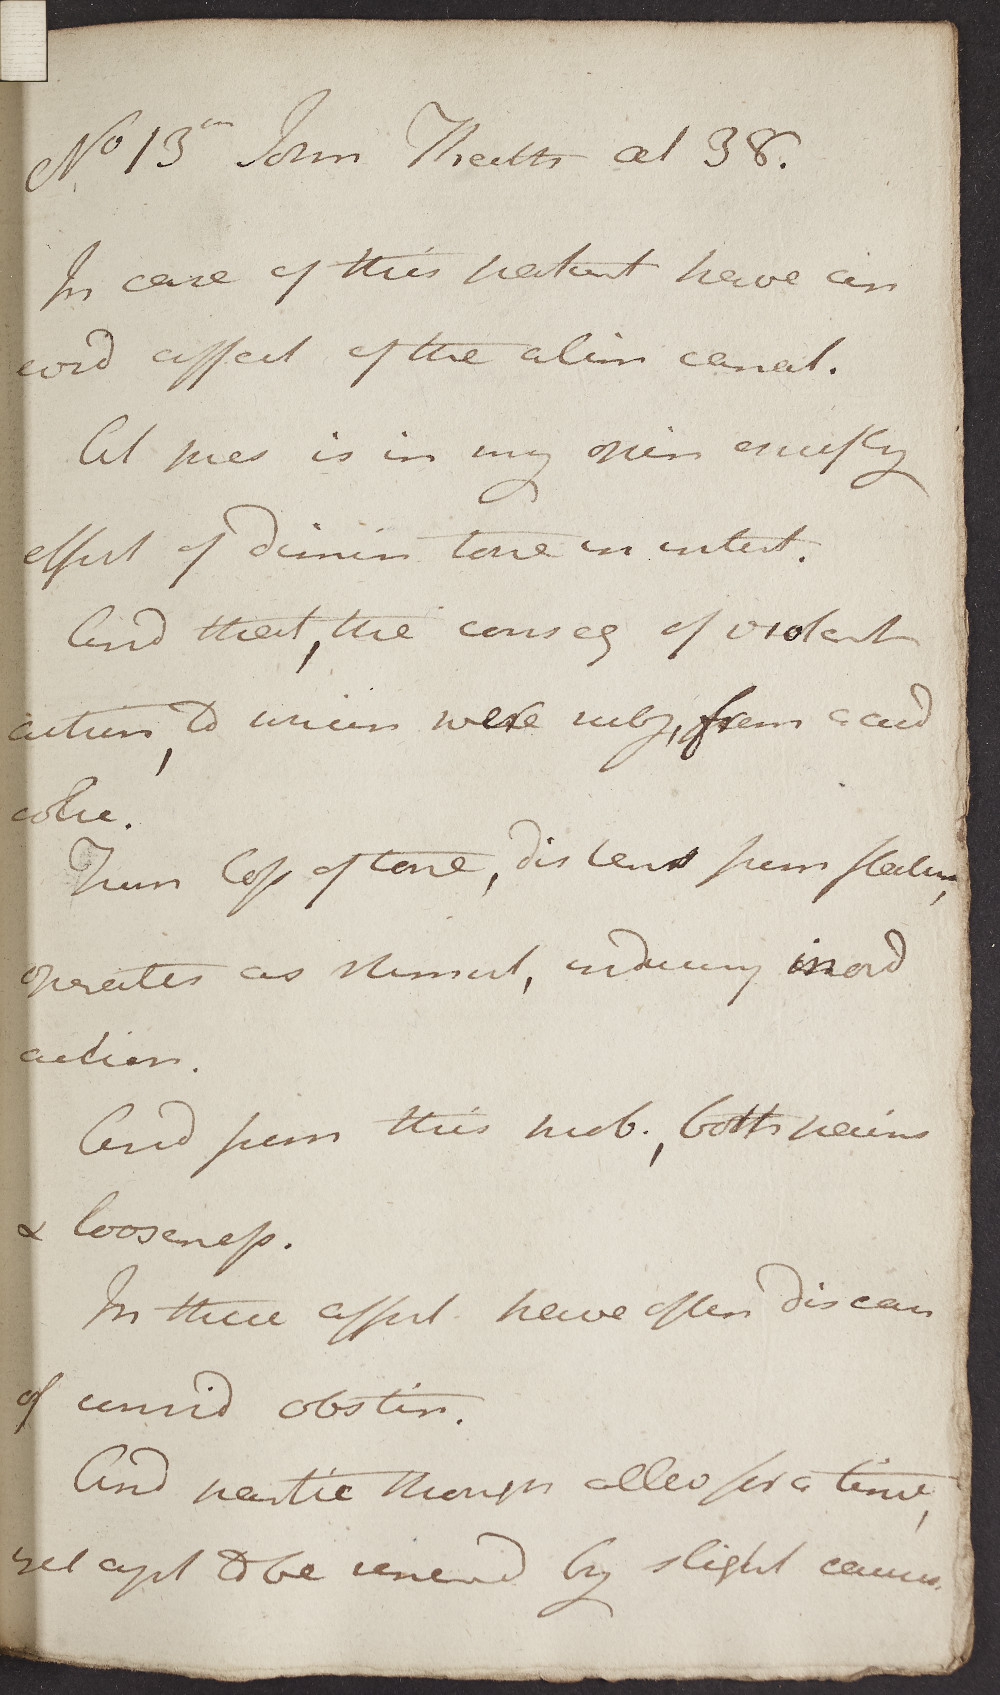 No 13 John Thealts aet 38.
In case of this patient have an
evid affect of the alim canal.
At pres is in my opin chiefly
effect of dimin tone in intest.
And that, the conseq of violent
action, to which were subj, from acid
colic.
From loss of tone, distens from flatus,
operates as stimul, inducing inord
action.
And from this prob., both pains
& looseness.
In these affect have often disease
of consid obstin.
And partic though allev for a time,
yet apt to be renewd by slight causes.